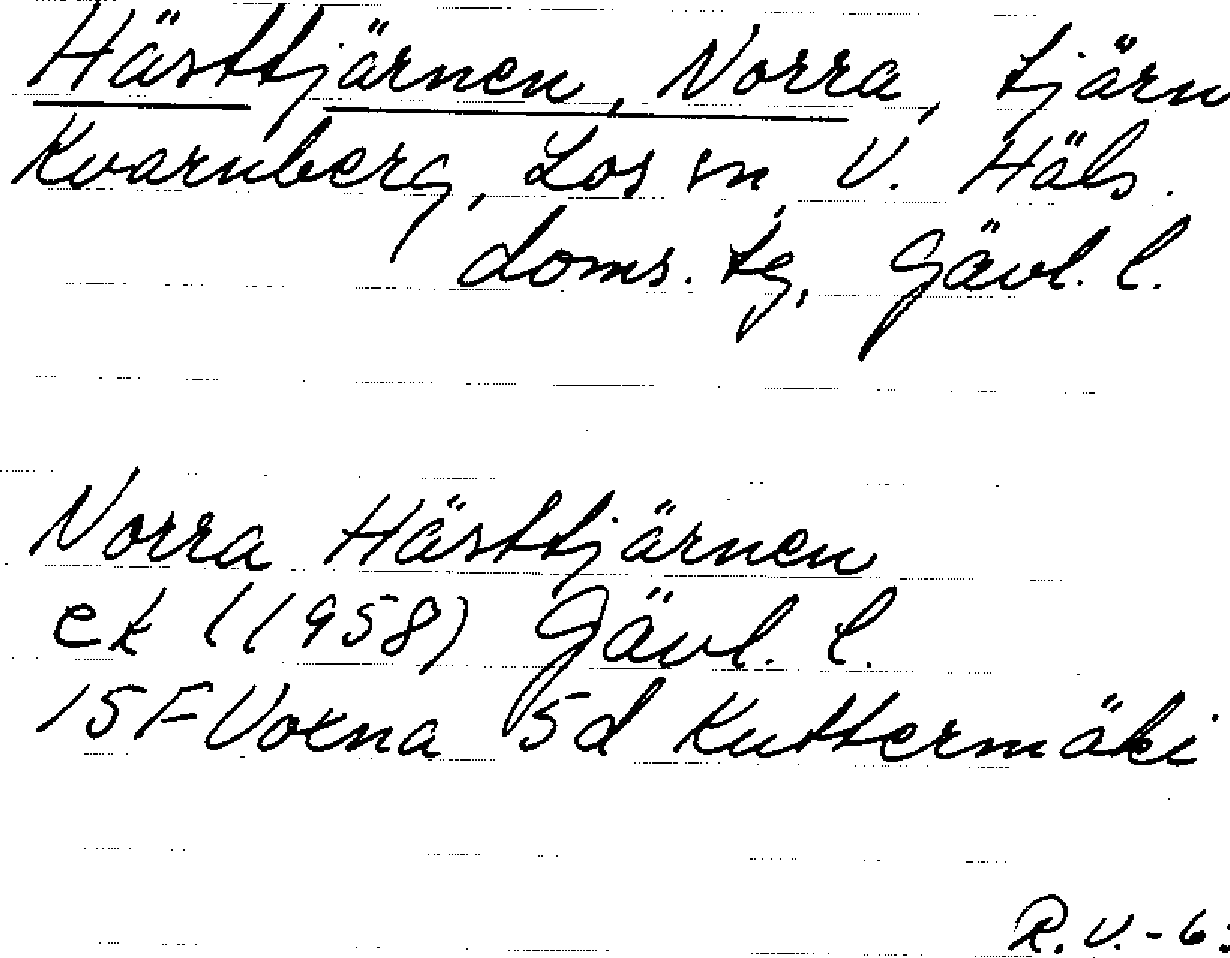 Hästtjärnen, Norra, tjärn
Kvarnberg, Los sn, V. Häls.
doms. tg, Gävl. l.
Norra Hästtjärnen
ek (1958) Gävl. l.
15F Voxna 5d Kuttermäki
R.V.-6